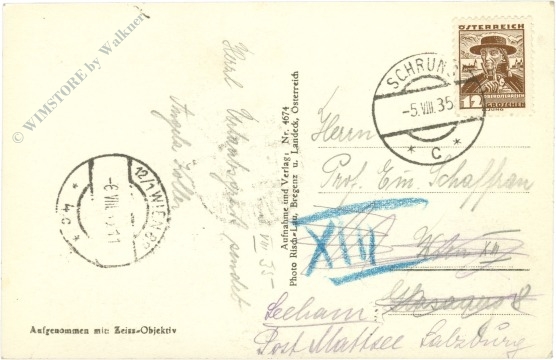 © WIMSTORE by Walknerr
Herzl. Urlaubsgrüße sendet
Angela
Aufnahme und Verlag: Nr. 4674
Photo Risch-Lau, Bregenz u. Landeck, Österreich
ÖSTERREICH
12 GROSCHEN
SCHRUNS
-5.VIII.35
* C *
12/1 WIEN
-6.VIII.35
Herrn
Prof. Em. Schaffran
XIII
Wien XIII
Seeham
Post Mattsee Salzburg
Aufgenommen mit Zeiss-Objektiv